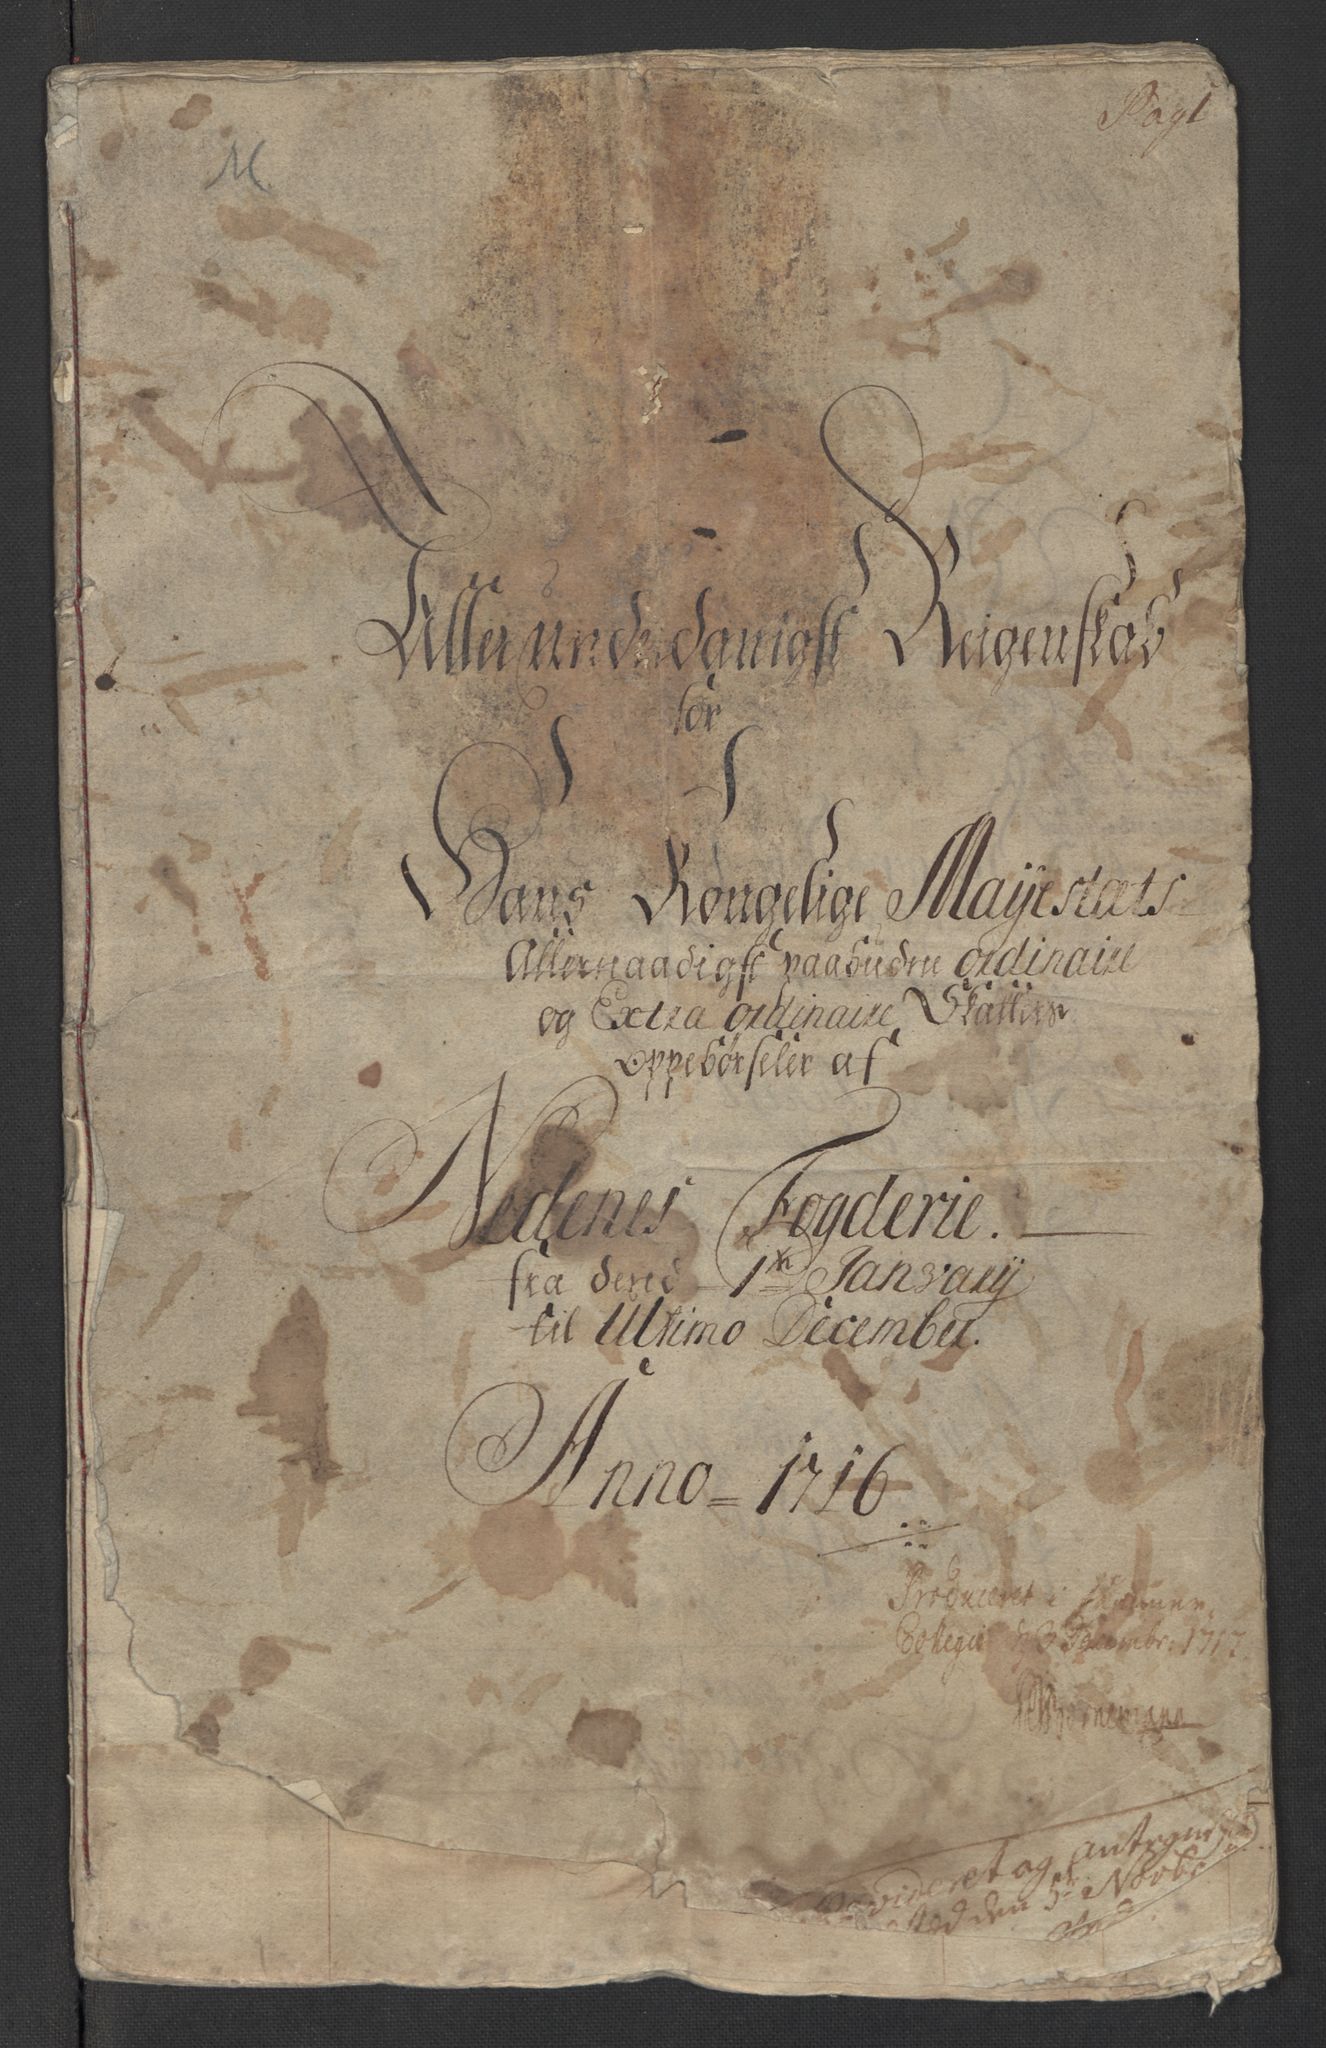 Pag 1
M
Allerunderdanigst Reigenskab
for
Hans Kongelige Mayestæts
Allernaadigst paabudne ordinaire
og Extra ordinaire Skatters
oppebørseler af
Nedenes Fogderie.
fra dend 1te January
til Ultimo December.
Anno = 1716
Produceret i Kammer
Collegio d 3 Decembr. 1717
Bornemann
Revideret og antegnelse
ved den 5te Nbobr